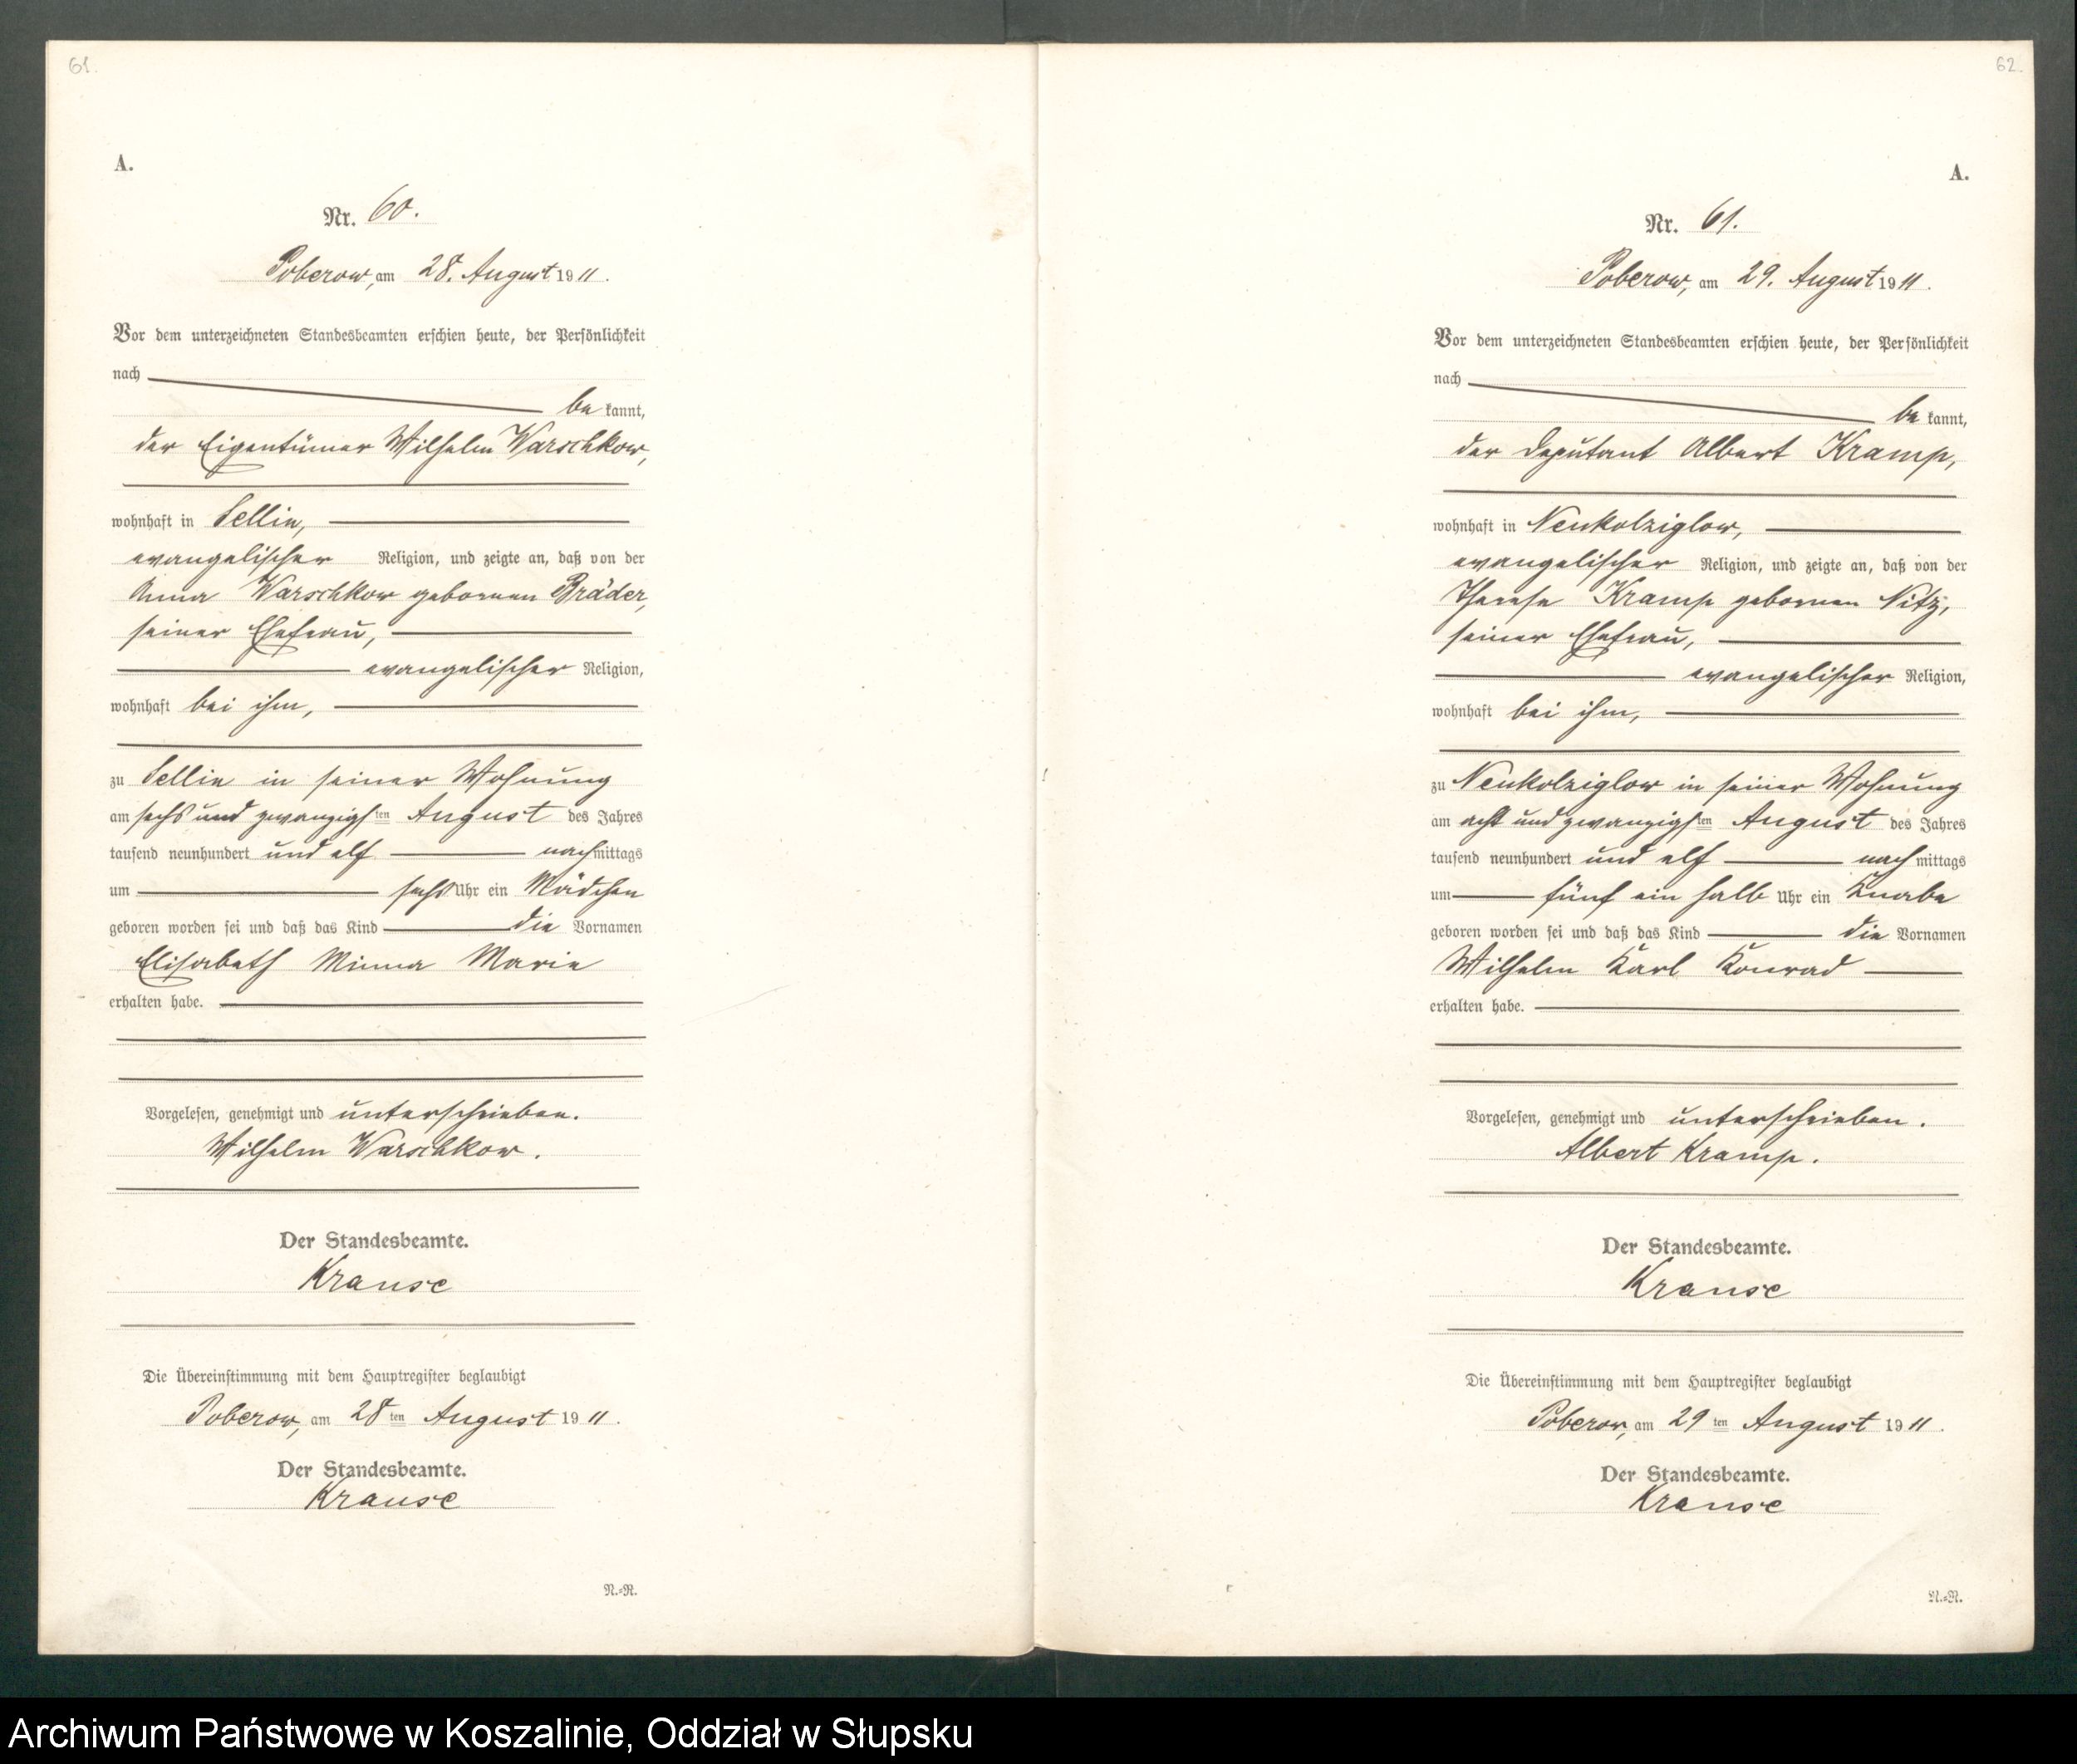 61.
A.
Nr. 60.
Poberow, am 28. August 1911.
Vor dem unterzeichneten Standesbeamten erschien heute, der Persönlichkeit
nach
be kannt,
der Eigentümer Wilhelm Warschkow,
wohnhaft in Sellin,
evangelischer Religion, und zeigte an, daß von der
Anna Warschkow gebornen Bräder,
seiner Ehefrau,
evangelischer Religion,
wohnhaft bei ihm,
zu Sellin in seiner Wohnung
am sechs und zwanzigsten August des Jahres
tausend neunhundert und elf nachmittags
um sechs Uhr ein Mädchen
geboren worden sei und daß das Kind die Vornamen
Elisabeth Minna Marie
erhalten habe.
Vorgelesen, genehmigt und unterschrieben.
Wilhelm Warschkow.
Der Standesbeamte.
Krause
Die Übereinstimmung mit dem Hauptregister beglaubigt
Poberow, am 28ten August 1911.
Der Standesbeamte.
Krause
N.=R.
62.
A.
Nr. 61.
Poberow, am 29. August 1911.
Vor dem unterzeichneten Standesbeamten erschien heute, der Persönlichkeit
nach
be kannt,
der Deputant Albert Kramp,
wohnhaft in Neukolziglow,
evangelischer Religion, und zeigte an, daß von der
Therese Kramp gebornen Nitz,
seiner Ehefrau,
evangelischer Religion,
wohnhaft bei ihm,
zu Neukolziglow in seiner Wohnung
am acht und zwanzigsten August des Jahres
tausend neunhundert und elf nach mittags
um fünf ein halb Uhr ein Knabe
geboren worden sei und daß das Kind die Vornamen
Wilhelm Karl Konrad
erhalten habe.
Vorgelesen, genehmigt und unterschrieben.
Albert Kramp.
Der Standesbeamte.
Krause
Die Übereinstimmung mit dem Hauptregister beglaubigt
Poberow, am 29ten August 1911.
Der Standesbeamte.
Krause
N.=R.
Archiwum Państwowe w Koszalinie, Oddział w Słupsku